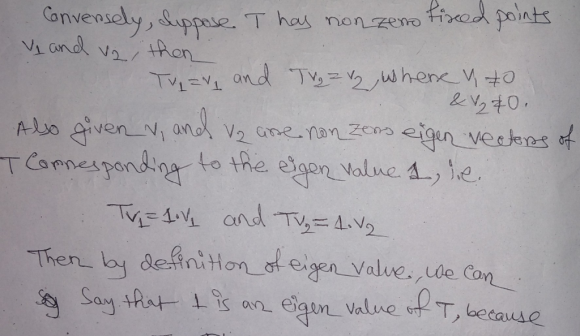 Conversely, Suppose T has non zero fixed points
v₁ and v₂, then
Tv₁=v₁ and Tv₂=v₂, where v₁≠0
& v₂≠0.
Also given v₁ and v₂ are non zero eigen vectors of
T Corresponding to the eigen value 1, i.e.
Tv₁=1.v₁ and Tv₂=1.v₂
Then by definition of eigen value, we can
Say that 1 is an eigen value of T, because